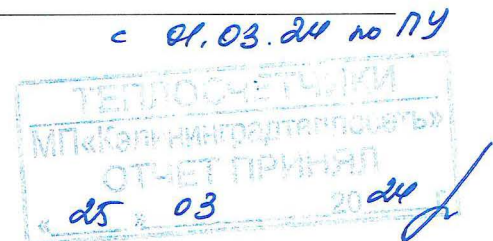 с 01.03.24 по ПУ
ТЕПЛОСЧЕТЧИКИ
МП«Калининградтеплосеть»
ОТЧЕТ ПРИНЯЛ
« 25 » 03 20 24 г